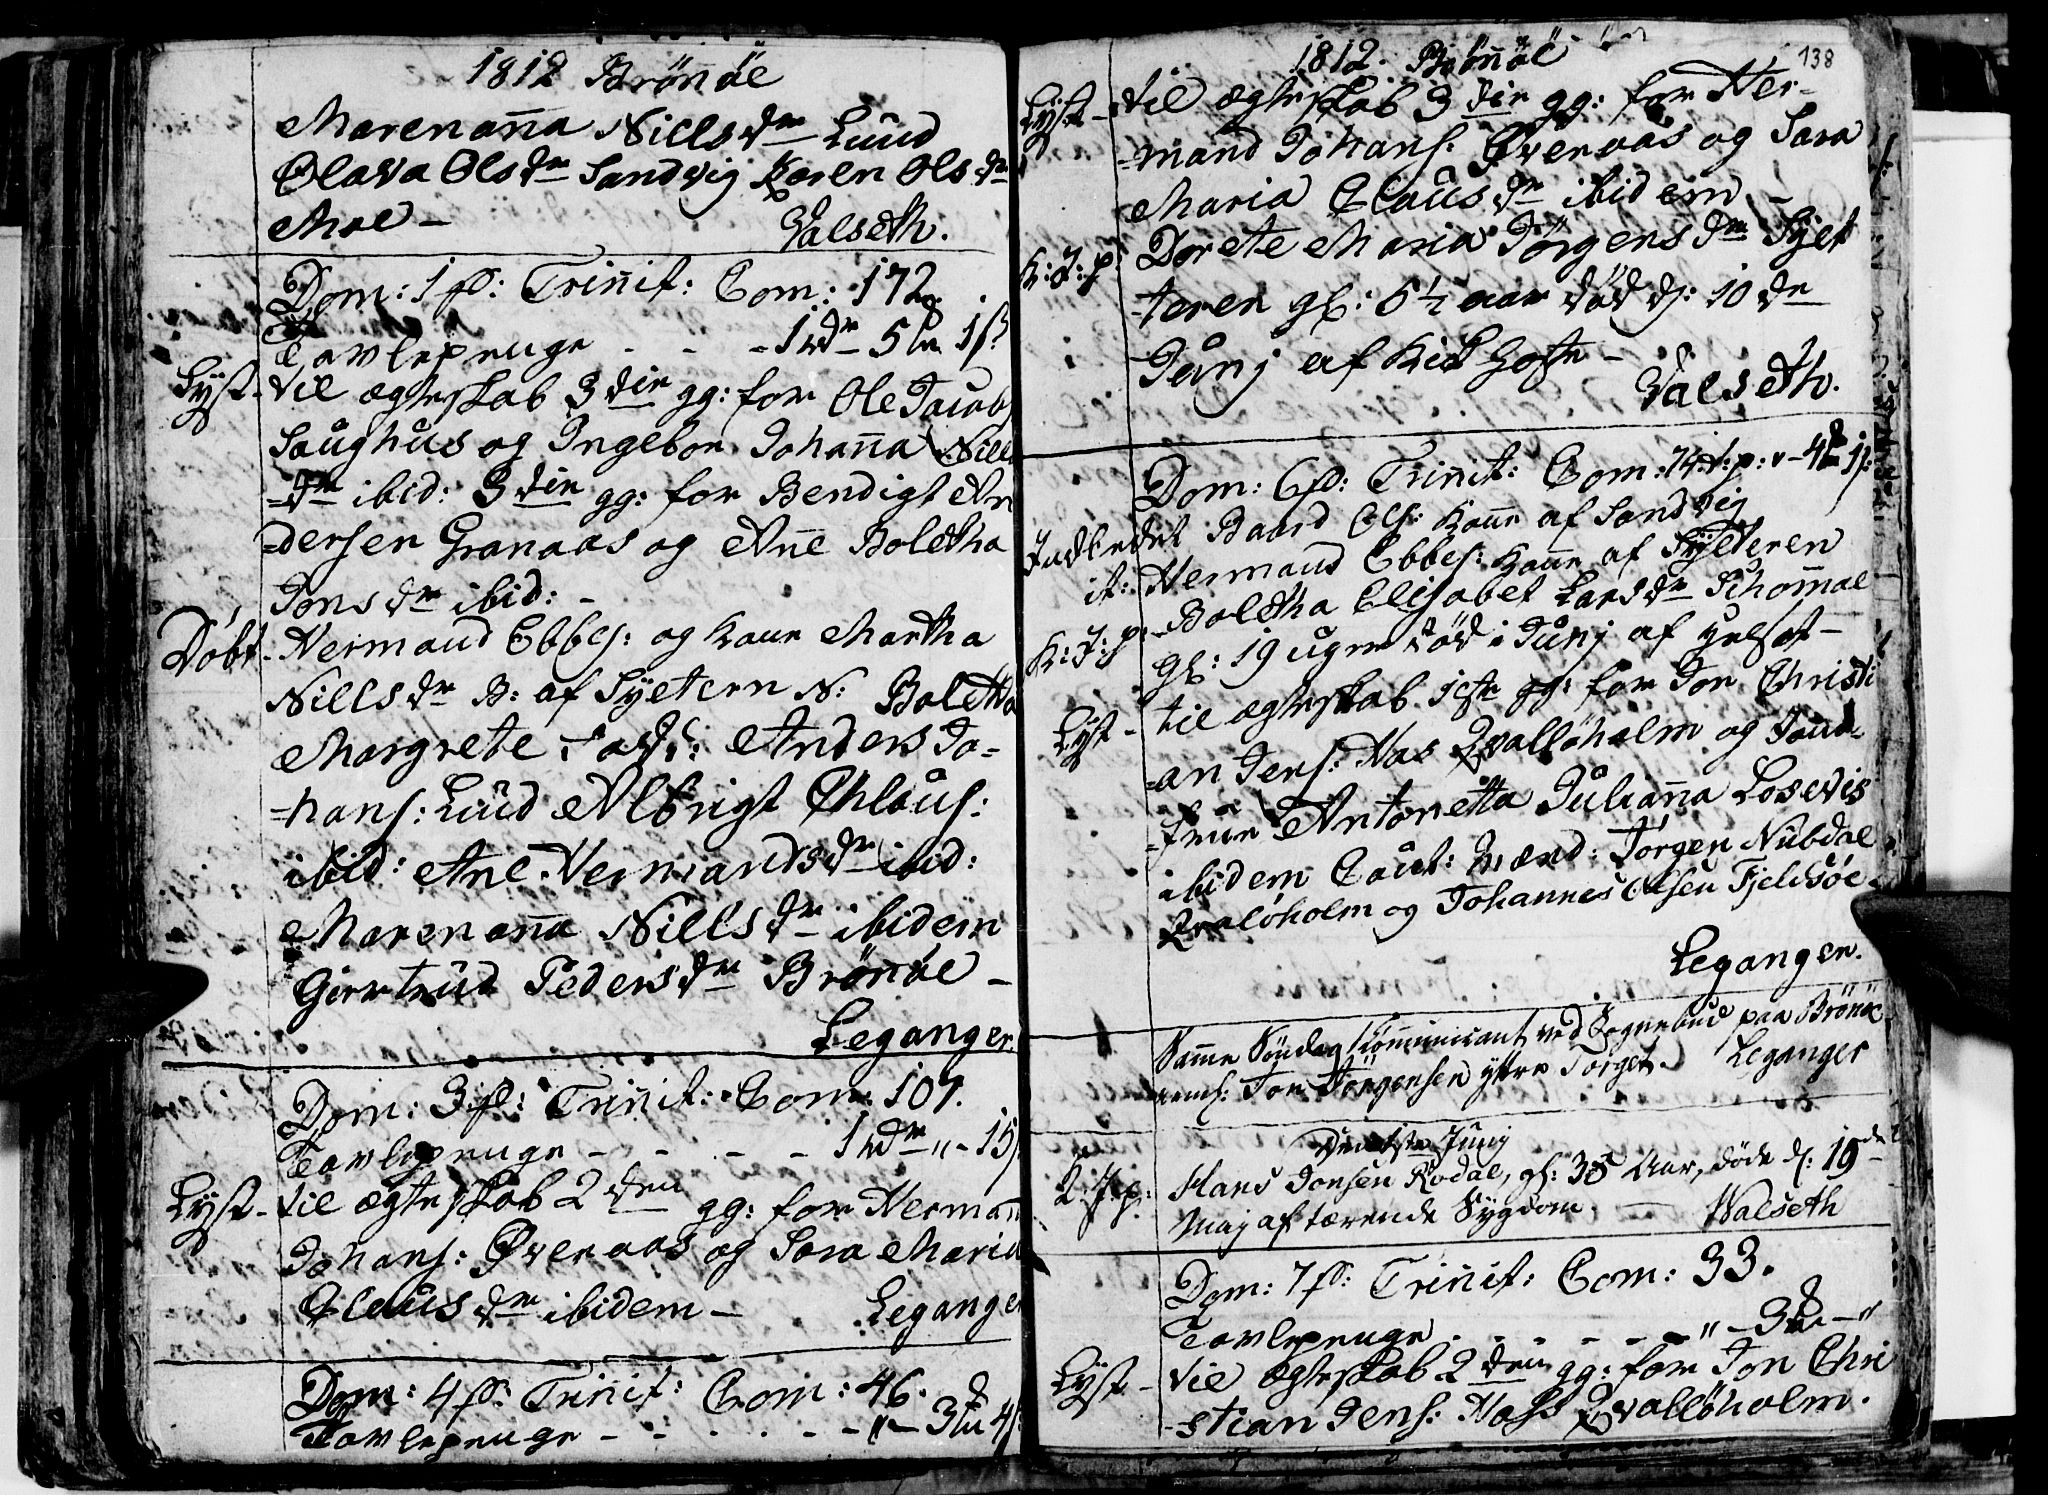 1812 Brönöe
Marenaña Nillsdr Lund
Olava Olsdr Sandvig Karen Olsdr
Moe –
Valseth.
Dom: 1 p: Triñit: Com: 172.
Tavlepenge - - - 1 rdr 5 1 s
Lyst - til ægteskab 3 die gg: for Ole Jacobs
Saughus og Ingebor Johaña Nills
=dr ibid: 3 die gg: for Bendigt An
=dersen Granaas og Añe Boletha
Jonsdr ibid: –
Döbt - Hermand Ebbes: og kone Martha
Nillsdr B: af Syetern N: Boletha
Margrete Fad: Anders Jo-
=hans: Lund Albrigt Chlaus:
ibid: Ane Hermandsdr ibid:
Marenaña Nillsdr ibidem
Giertrud Pedersdr Brönöe –
Leganger.
Dom: 3 p: Triñit: Com: 107.
Tavlepenge - - - - 1 rdr „ - 15 s
Lyst - til ægteskab 2 den gg: for Hermañ
Johans: Øvenaas og Sara Maria
Clausdr ibidem –
Leganger
Dom: 4 p: Triñit: Com: 46.
Tavlepenge - - - - - „ - 3 4 s
138
1812. Brönöe
Lyst - til ægteskab 3 die gg: for Her-
=mand Johans: Øvenaas og Sara
Maria Clausdr ibidem –
K: J: p: Dorete Maria Jörgensdr Syet
=teren gl: 6 ½ aar död d: 10 de
Junj af Kickhoste –
Valseth.
Dom: 6 p: Triñit: Com: 74 t: p: - 4 1 s:
Indledet Baard Ols: kone af Sandvig
it: Hermand Ebbes: kone af Syeteren
K: J: p: Boletha Elisabet Larsdr Schomoe
gl: 19 uger död i Junj af
Lyst - til ægteskab 1ste gg: for Jon Christi
=an Jens: Has Qvallöholm og Jom-
=frue Antonetta Juliaña Losevis
ibidem Caut: mænd: Jörgen Nübdal
Qvalöholm og Johannes Olsen Fjeldsöe
Leganger.
Same Söndag Kommunicant ved Sognebud paa Brönöe
añs: Jon Jörgensen yttre Torget. Leganger
Den 1ste Junij
K. J. p: Hans Jonsen Rödal, gl: 35 Aar, döde d: 19de
Maj af tærende Sygdom. – Walseth
Dom: 7 p: Triñit: Com: 33.
Tavlepenge - - - - - „ - 3 - „
Lyst - til ægteskab 2 den gg: for Jon Chri
=stian Jens: Hass Qvallöholm.